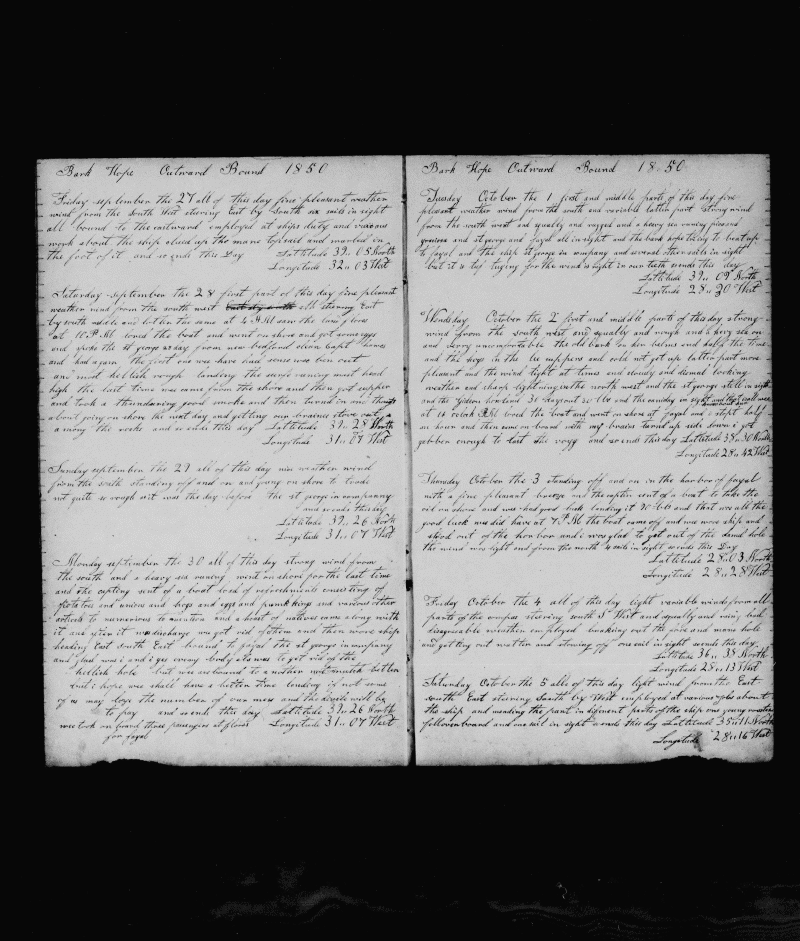 Bark Hope Outward Bound 1850
Friday september the 27 all of this day fine pleasant weather
wind from the South West stering East by South six sails in sight
all bound to the eastward employed at ships duty and various
work about the ship clued up the mane topsail and marled in
the foot of it and so ends this Day Lattitude 39.. 05 North
Longitude 32.. 03 West
Saturday september the 28 first part of this day fine pleasant
weather wind from the south west all stering East
by south middle and latter the same at 4 A.M saw the land flores
at P.M lowed the boat and went on shore and got some eggs
and spoke the st george 28 days from new bedford clean capt hawes
and had again the first one we have had sense we ben out
and most hellish rough landing the surf runing mast head
high the last time we came from the shore and then got supper
and took a thundering good smoke and then turned in and thought
about going on shore the next day and gitting our braines stove out
among the rocks and so ends this day Lattitude 39.. 28 North
Longitude 31.. 07 West
Sunday september the 29 all of this day nice weather wind
from the south standing off and on and going on shore to trade
not quite so rough as it was the day before the st george in companny
and so ends this day
Lattitude 39.. 26 North
Longitude 31.. 07 West
Monday september the 30 all of this day strong wind from
the south and a heavy sea runing went on shore for the last time
and the capting sent of a boat load of refreshments consisting of
potatoes and unions and hogs and eggs and pumkkings and various other
articls to numerious to mention and a heast of natives came along with
it and after it was discharge we got rid of them and then wore ship
heading East South East bound to fayal the st george in company
and glad was i and i gess every body els was to get rid of the
hellish hole but we are bound to another not much better
but i hope we shall have a better time landing if not some
of us may lose the number of our mess and the devile will be
to pay and so ends this day Lattitude 39.. 26 North
we took on board three passengers at flores Longitude 31.. 07 West
for fayal
Bark Hope Outward Bound 18..50
Tuesday October the 1 first and middle parts of this day fine
pleasant weather wind from the south and variable latter part strong wind
from the south west and squally and rugged and a heavy sea runing pico and
graciosa and st george and fayal all in sight and the bark hope trying to beat up
to fayal and the ship st george in company and several other sails in sight
but it is tuf tuging for the wind is right in our teeth so ends this day
Lattitude 39.. 09 North
Longitude 28.. 20 West
Wendsday October the 2 first and middle parts of this day strong
wind from the south west and squally and rough and a heavy sea on
and devry uncomfortable the old bark on her belms end half the time
and the hogs in the lee scuppers and cold not get up latter part more
pleasant and the wind light at times and cloudy and dismal looking
weather and sharp lightning in the north west and the st george still in sight
and the Gideon howland 30 days out 30 bbls and the canaday in sight and that well was
at 10 oclok A.M lowed the boat and went on shore at fayal and i stopt half
an hour and then came on board with my braies turnd up side down i got
gebber enough to last the voyg and so ends this day Lattitude 38.. 30 North
Longitude 28.. 42 West
Thursday October the 3 standing off and on in the harbor of fayal
with a fine pleasant breeze and the captin sent of a boat to take the
oil on shore and we had good luck landing it 70 bbls and that was all the
good luck we did have at 7 P.M the boat came off and we wore ship and
stood out of the harbor and i was glad to get out of the damd hole
the wind was light and from the north 4 sails in sight so ends this Day
Lattitude 28.. 03 North
Longitude 28.. 28 West
Friday October the 4 all of this day light variable winds from all
parts of the compas stereing south S West and squally and rainy bad
disagreable weather employed breaking out the fore and main hole
and getting out watter and stowing off one sail in sight so ends this day
Lattitude 36.. 38 North
Longitude 28.. 13 West
Saturday October the 5 alls of this day light wind from the East
South East stering South by West employed at various jobs about
the ship and mending the pant in diferent parts of the ship
followen board and one sail in sight so ends this day Lattitude 35.. 11 North
Longitude 28.. 16 West